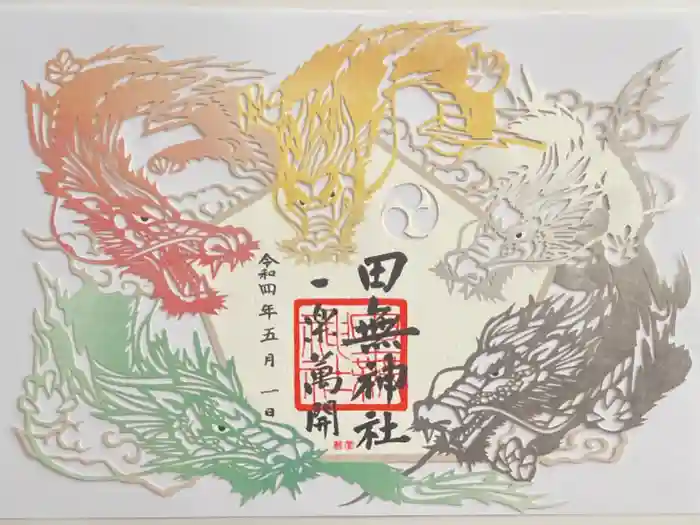 田無神社
一楽萬開
令和四年五月一日